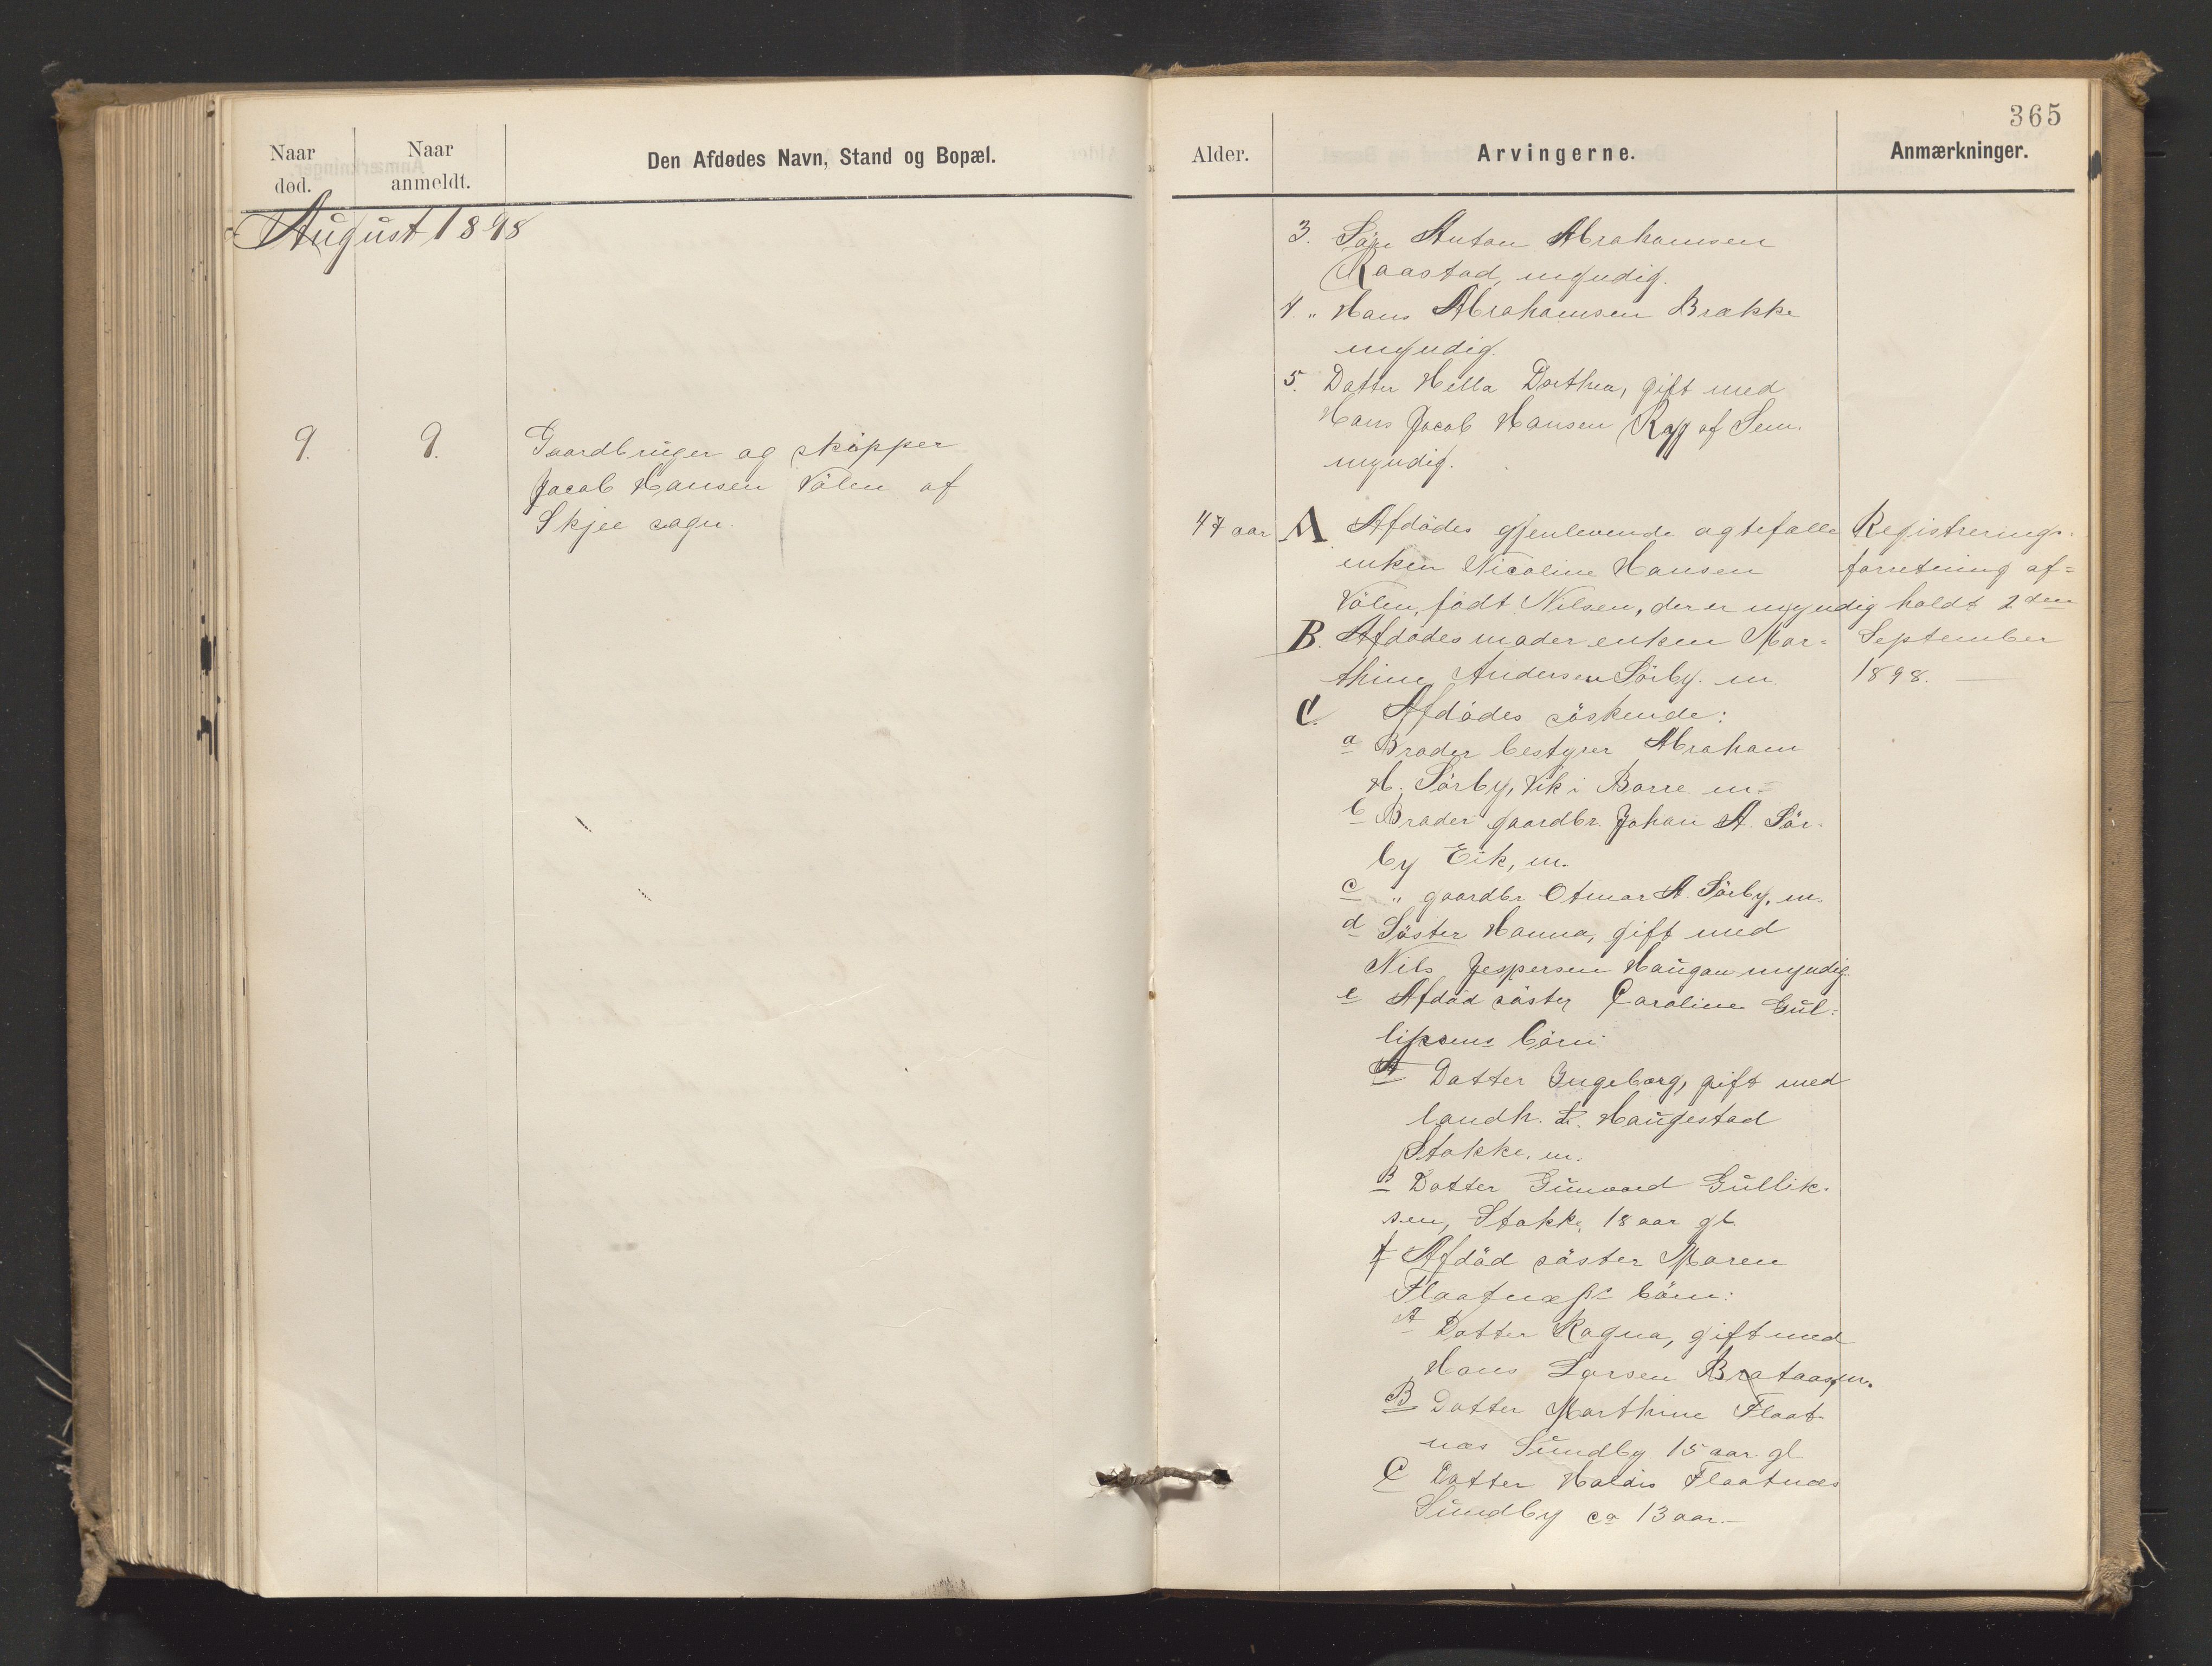 365
Naar død.
Naar anmeldt.
Den Afdødes Navn, Stand og Bopæl.
Alder.
Arvingerne.
Anmærkninger.
August 1898
9.
9.
Gaardbruger og skipper
Jacob Hansen Völen af
Skjee sogn.
3. Sön Anton Abrahamsen
Raastad, myndig.
4. " Hans Abrahamsen Brække
myndig.
5. Datter Hella Dorthea, gift med
Hans Jacob Hansen af Sem.
myndig.
47 aar
A. Afdödes gjenlevende ægtefælle
enken Nicoline Hansen
Völen, födt Nilsen, der er myndig
B. Afdödes moder enken Mar=
thine Andersen Sörby. m.
C. Afdödes söskende:
a Broder bestyrer Abraham
H. Sörby, Vik i Borre m=
b Broder gaardbr. Johan A. Sör-
by Eik, m.
c " gaardbr Otmar A. Sörby, m.
d Söster Hanna, gift med
Nils Jespersen Haugan myndig.
e Afdöd söster Caroline Gul=
liksens börn:
A Datter Ingeborg, gift med
landh. Haugestad
Stokke, m.
B Datter Gunvord Gullik-
sen, Stokke, 18 aar gl.
f Afdöd söster Maren
Flaatnæss börn:
A Datter Ragna, gift med
Hans Larsen Brataas, m.
B Datter Marthine Flaat-
næs Sundby 15 aar gl
C Datter Haldis Flaatnæs
Sundby ca 13 aar.-
Registrerings-
forretning af=
holdt 2den
September
1898. —